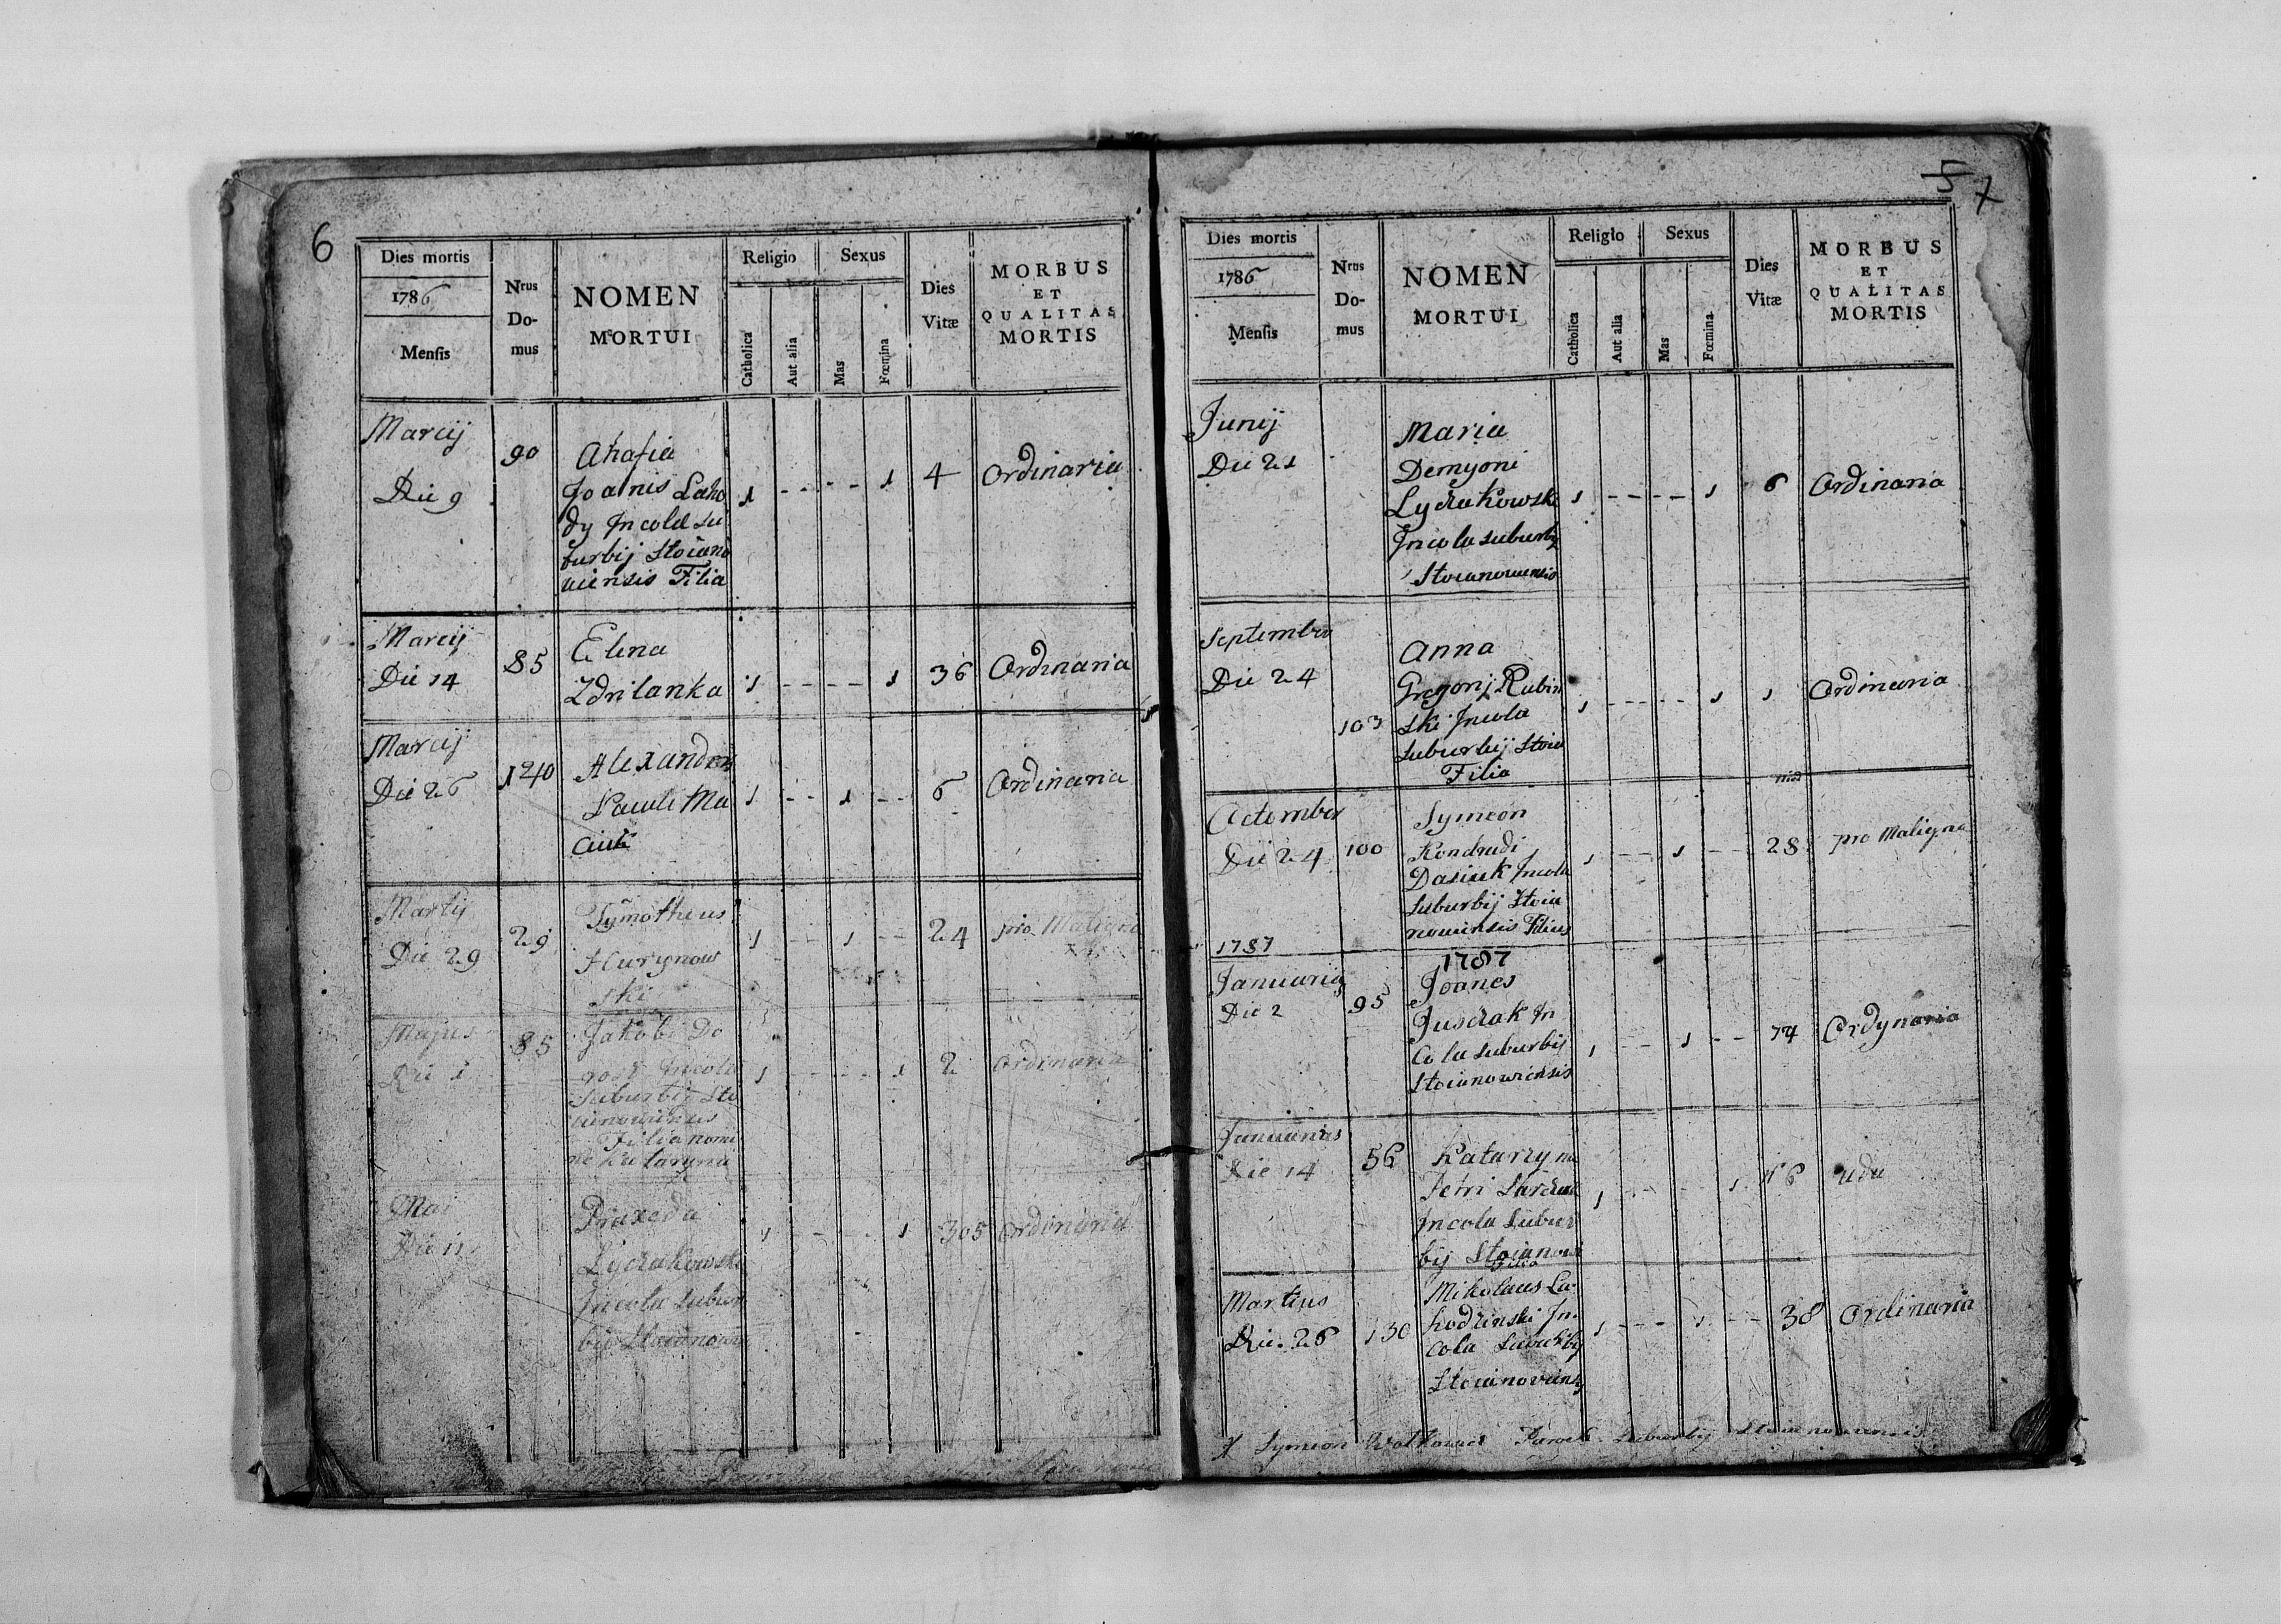 6
Dies mortis
1786
Mensis
Nrus
Do-
mus
NOMEN
MORTUI
Religio
Catholica
Aut alia
Sexus
Mas
Fœmina
Dies
Vitæ
MORBUS
ET
QUALITAS
MORTIS
Marcij
Die 9
90
Ahafia
Joanis Laho
dy Incola su
burbij Stoiano
uiensis Filia
1 - - - - 1
4
Ordinaria
Marcij
Die 14
85
Elena
Zdrilanka
1 - - - - 1
36
Ordinaria
Marcij
Die 26
140
Alexandri
Pauli Ma
ciuk
1 - - 1 - -
6
Ordinaria
Martij
Die 29
29
Tymotheus
Hurynow
ski
1 - - 1 - -
24
pro Maligna
Majus
Die 1
85
Jakobi Do
Incola
Suburbij Sto
Filia nomi
ne Kataryna
1 - - - - 1
2
Ordinaria
Mai
Die 11
Praxeda
Lyczakowski
Incola Subur
bij Stoianowi
1 - - - - 1
305
Ordinaria
5
7
Dies mortis
1786
Mensis
Nrus
Do-
mus
NOMEN
MORTUI
Religio
Catholica
Aut alia
Sexus
Mas
Fœmina
Dies
Vitæ
MORBUS
ET
QUALITAS
MORTIS
Junij
Die 21
Maria
Demyoni
Lyczakowski
Incola suburbij
Stoianowiensis
1 - - - - 1
6
Ordinaria
September
Die 24
103
Anna
Gregorij Rubin
ski Incola
Suburbij Stoia
Filia
1 - - - - 1
1
Ordinaria
Octomber
Die 24
100
Symeon
Kondradi
Dasiuk Incola
Suburbij Stoia
nowiensis Filius
1 - - 1 - -
28
pro Maligna
1787
1787
Januarius
Die 2
95
Joanes
Jusczak In
Cola Suburbij
Stoianowiensis
1 - - 1 - -
74
Ordynaria
Januarius
Die 14
56
Katarzyna
Petri
Incola Subur
bij Stoianowi
Filia
1 - - - - 1
16
Martius
Die. 26
130
Mikolaus La-
hodzinski In-
cola Suburbij
Stoianowiensis
1 - - 1 - -
38
Ordinaria
X Symeon Wolkowicz Paroch. Suburbij Stoianowiensis